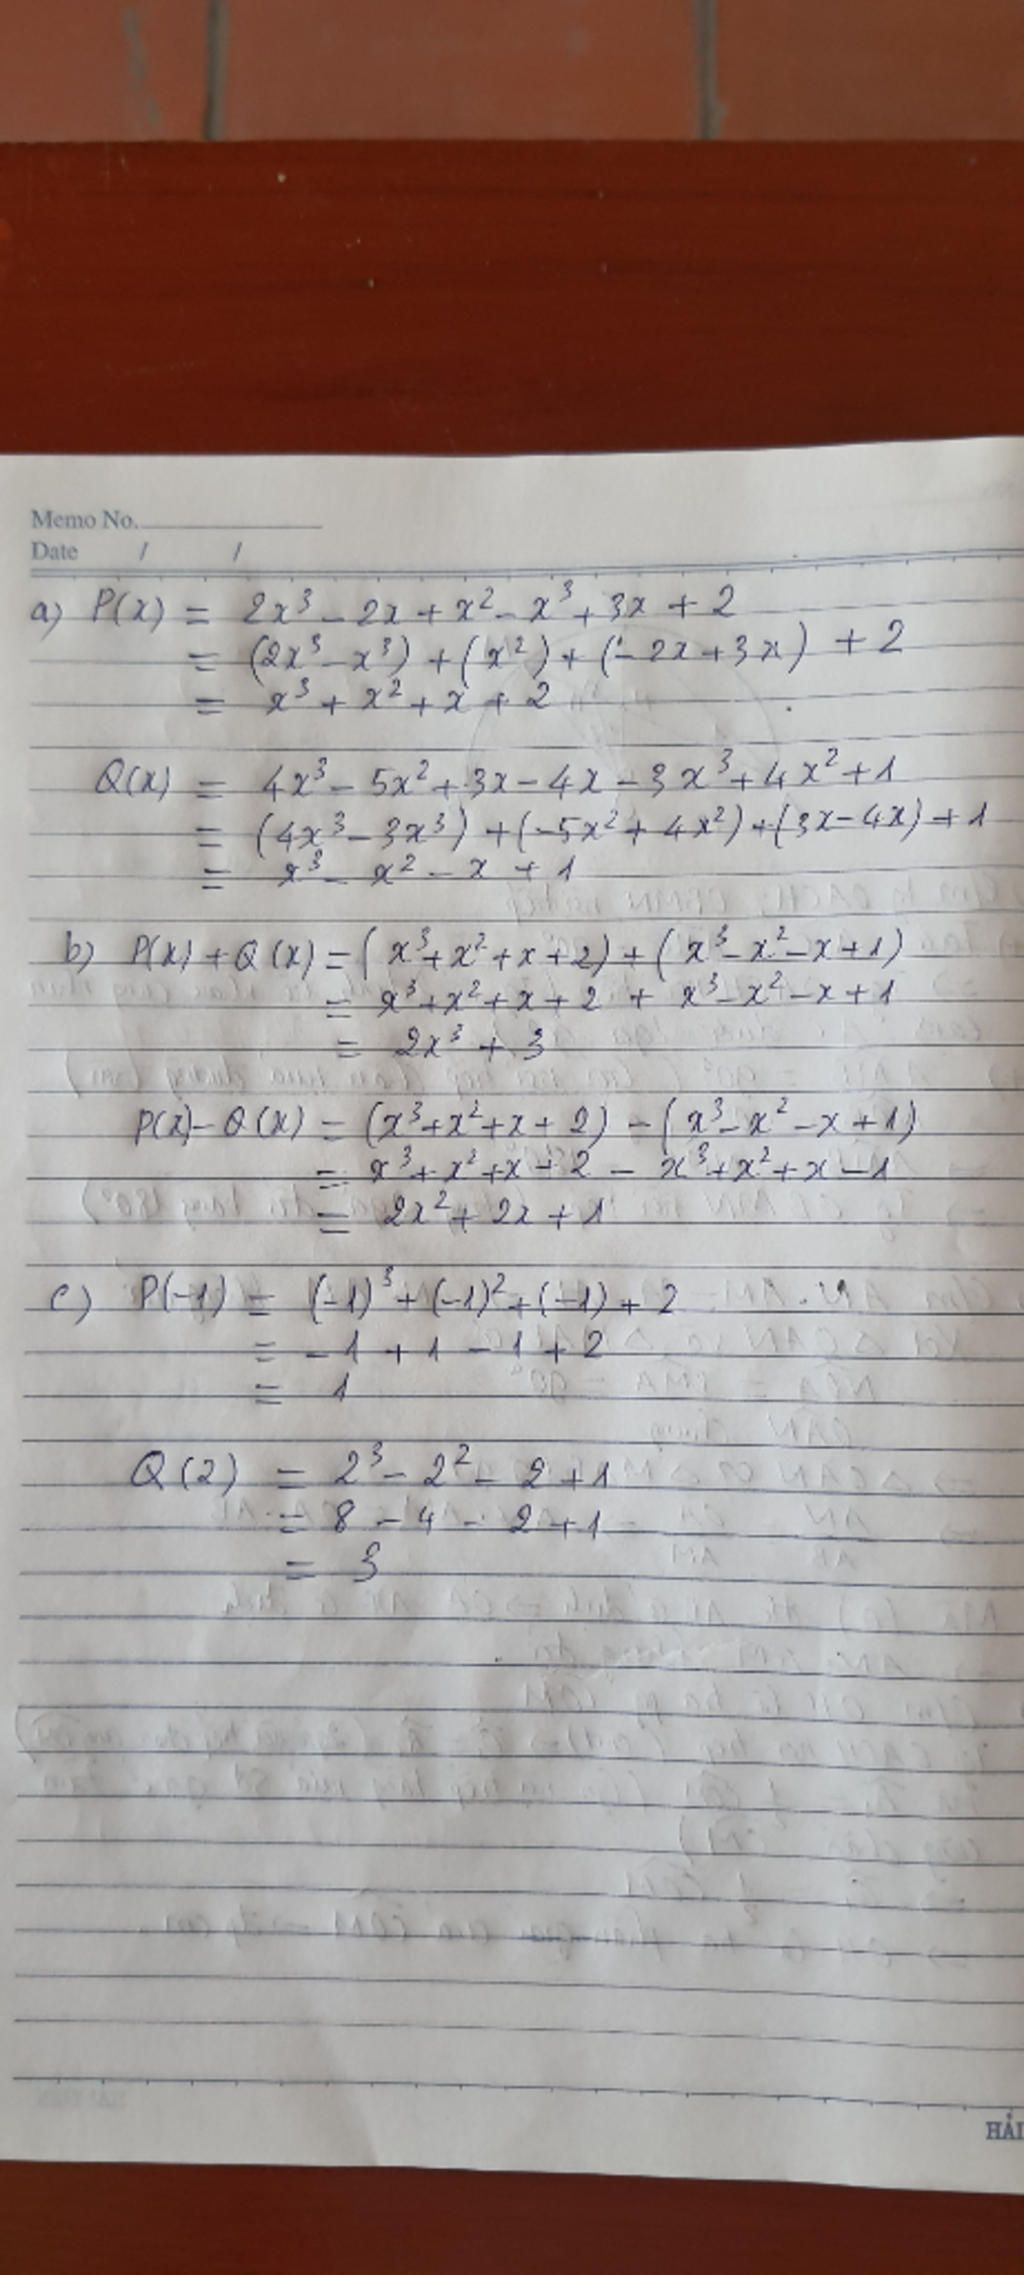 Memo No.
Date / /
a) P(x) = 2x³ - 2x + x² - x³ + 3x + 2
= (2x³ - x³) + (x²) + (-2x + 3x) + 2
= x³ + x² + x + 2
Q(x) = 4x³ - 5x² + 3x - 4x - 3x³ + 4x² + 1
= (4x³ - 3x³) + (-5x² + 4x²) + (3x - 4x) + 1
= x³ - x² - x + 1
b) P(x) + Q(x) = (x³ + x² + x + 2) + (x³ - x² - x + 1)
= x³ + x² + x + 2 + x³ - x² - x + 1
= 2x³ + 3
P(x) - Q(x) = (x³ + x² + x + 2) - (x³ - x² - x + 1)
= x³ + x² + x + 2 - x³ + x² + x - 1
= 2x² + 2x + 1
c) P(-1) = (-1)³ + (-1)² + (-1) + 2
= -1 + 1 - 1 + 2
= 1
Q(2) = 2³ - 2² - 2 + 1
= 8 - 4 - 2 + 1
= 3